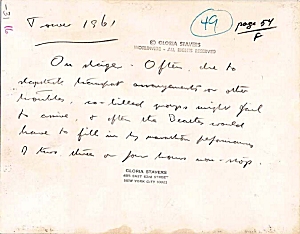 Tower 1961
49
page 54
© GLORIA STAVERS
WORLDWIDE - ALL RIGHTS RESERVED
On stage. Often, due to
transport arrangements or other
troubles, co-billed groups might fail
to arrive, & often the Beatles would
have to fill in by marathon performances
of two, three or four hours non-stop.
GLORIA STAVERS
EAST 63rd STREET
NEW YORK CITY 10021